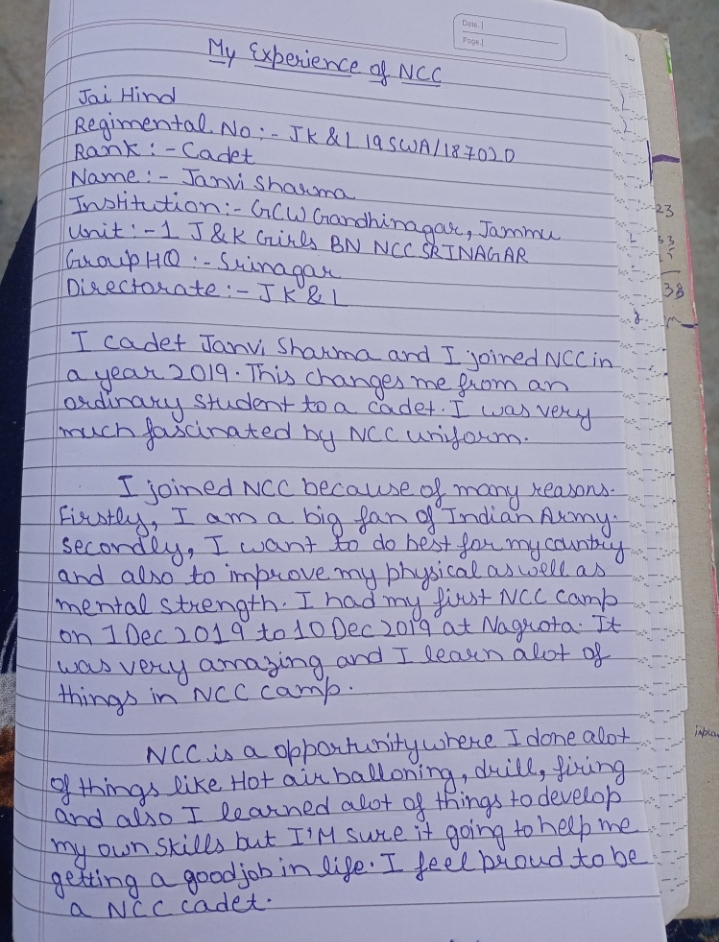 Date.
Page.
My Experience of NCC
Jai Hind
Regimental No :- JK & L 19 SWA/187020
Rank :- Cadet
Name :- Janvi Sharma
Institution :- GCW Gandhinagar, Jammu
Unit :- 1 J&K Girls BN NCC SRINAGAR
Group HQ :- Srinagar
Directorate :- JK & L
I cadet Janvi Sharma and I joined NCC in
a year 2019. This changes me from an
ordinary student to a cadet. I was very
much fascinated by NCC uniform.
I joined NCC because of many reasons.
Firstly, I am a big fan of Indian Army.
Secondly, I want to do best for my country
and also to improve my physical as well as
mental strength. I had my first NCC camp
on 1 Dec 2019 to 10 Dec 2019 at Nagrota. It
was very amazing and I learn alot of
things in NCC camp.
NCC is a opportunity where I done alot
of things like Hot air balloning, drill, firing
and also I learned alot of things to develop
my own skills but I'M sure it going to help me
getting a good job in life. I feel proud to be
a NCC cadet.
23
38